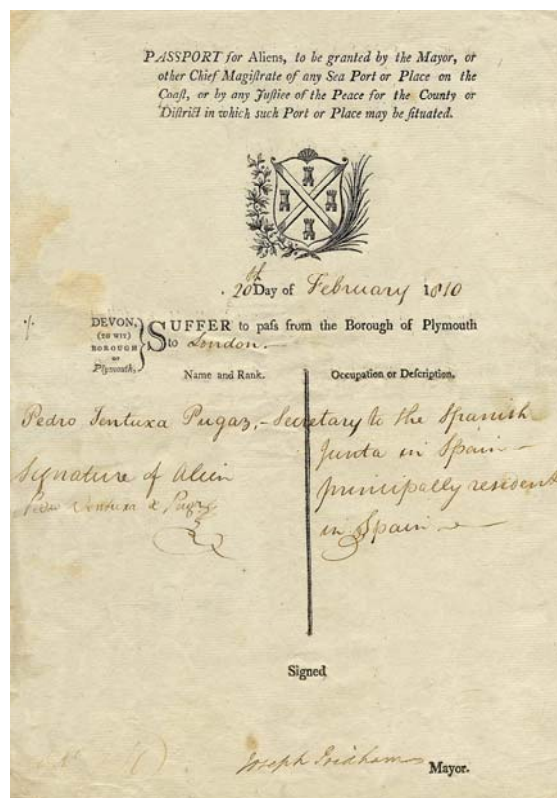 PASSPORT for Aliens, to be granted by the Mayor, or
other Chief Magiſtrate of any Sea Port or Place on the
Coaſt, or by any Juſtice of the Peace for the County or
Diſtrict in which such Port or Place may be ſituated.
20th Day of February 1810
DEVON,
(TO WIT)
BOROUGH
OF
Plymouth,
SUFFER to paſs from the Borough of Plymouth
to London.
Name and Rank.
Occupation or Deſcription.
Pedro Ventuxa Pugaz, - Secretary to the Spanish
Junta in Spain -
principally resident
in Spain
Signature of Alien
Pedro Ventura
Signed
Joseph Pridham Mayor.